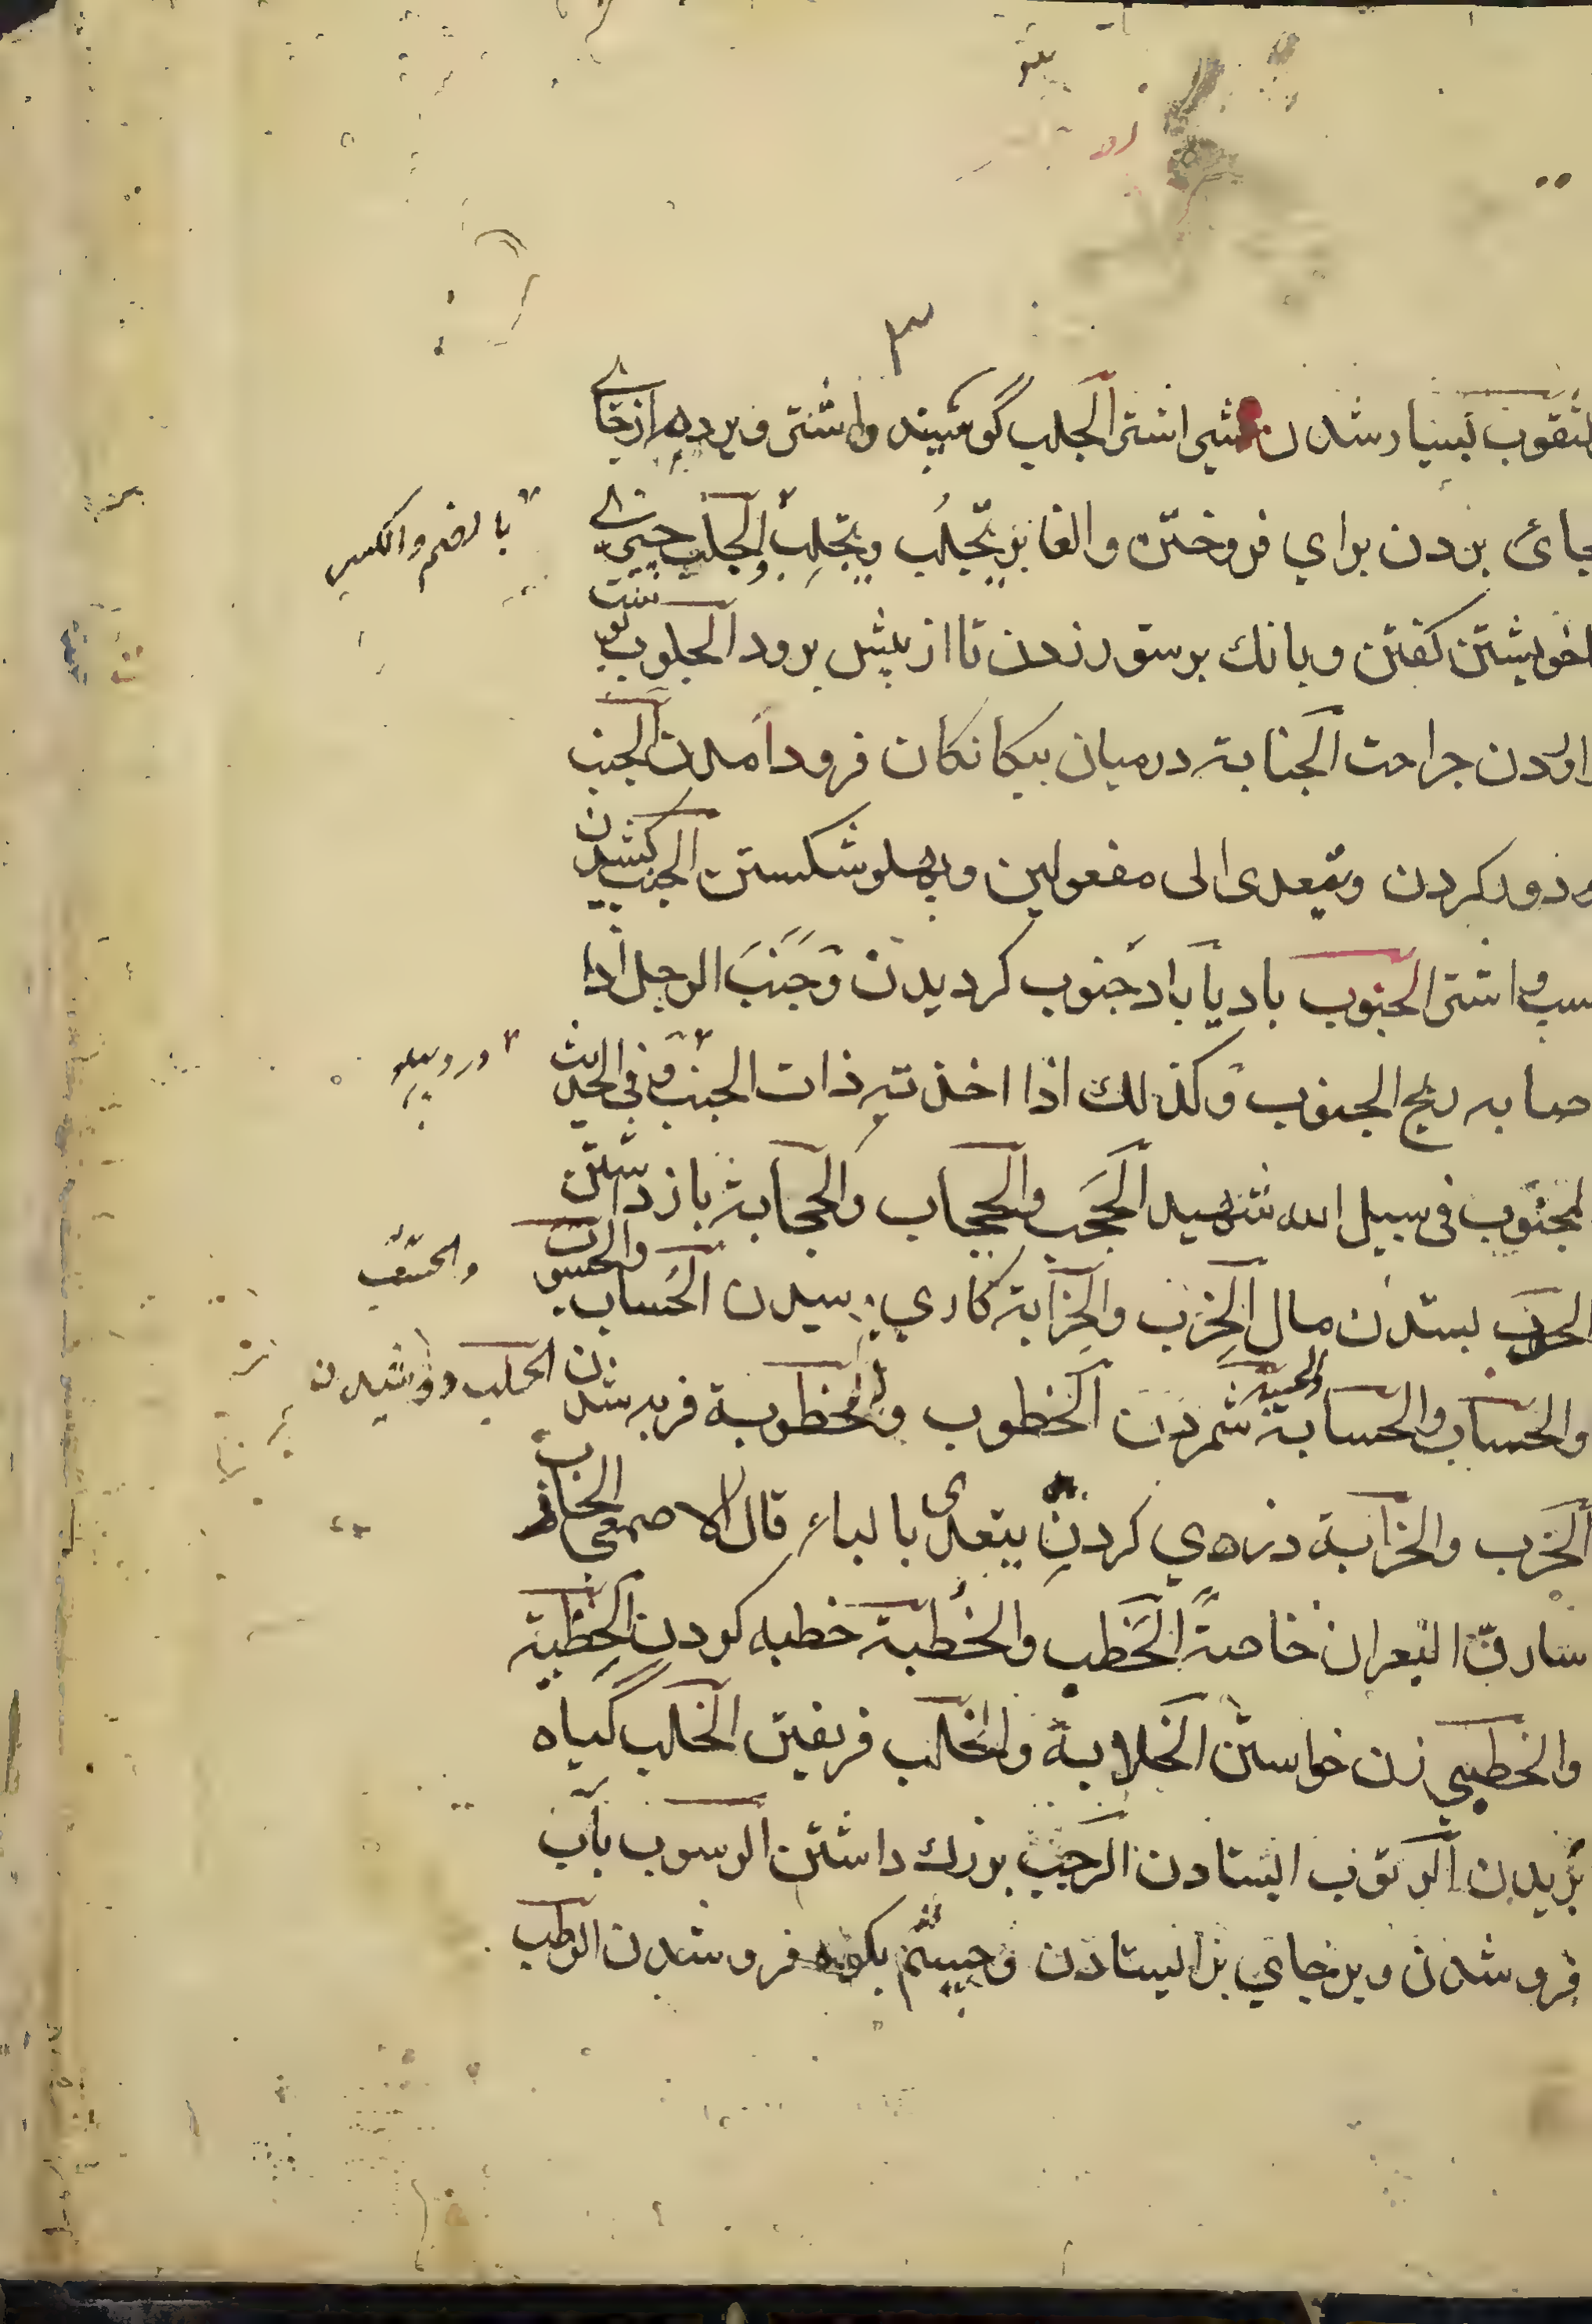 ٣
لثقوب بسیار شدن شیر اشتر الجلب گوسپند واشتر وبرده از جائے
بجائ بردن برای فروختن والغابر یجلُب ویجلِب والجلب چیزے
باخویشتن کفتن وبانك بر ستور زدن تا از پیش برود الجلوب پوست
اوردن جراحت الجنابة در میان بیکانکان فرود آمدن الجنب
ودور کردن ویتعدی الی مفعولین وپهلو شکستن الجنب کشیدن
اسب واشتر الجنوب باد با باد جنوب کردیدن وجنب الرجل اذا
اصابه ریح الجنوب وکذلك اذا اخذته ذات الجنب وفی الحدیث
المجنوب فی سبیل الله شهید الحجب والحجاب والحجابة بازداشتن
الحرب بستدن مال الحزب والحزابة کاری رسیدن الحساب والحسبان
والحساب والحسابة والحسبة شمردن الخطوب والخظوبة فربه شدن
الخرب والخرابة دزدی کردن یتعدی بالباء قال الاصمعی الخارب
سارق البعران خاصةً الخطب والخُطبة خطبه کردن الخِطبة
والخطیبی زن خواستن الخلابة والخلب فریفتن الخلب گیاه
بریدن الرتوب ایستادن الرجب بزرك داشتن الرسوب بآب
فرو شدن وبرجای بر ایستادن وچشم بکوه فرو شدن الرطب
بالضم والکسر
والحسب
الحلب دوشیدن